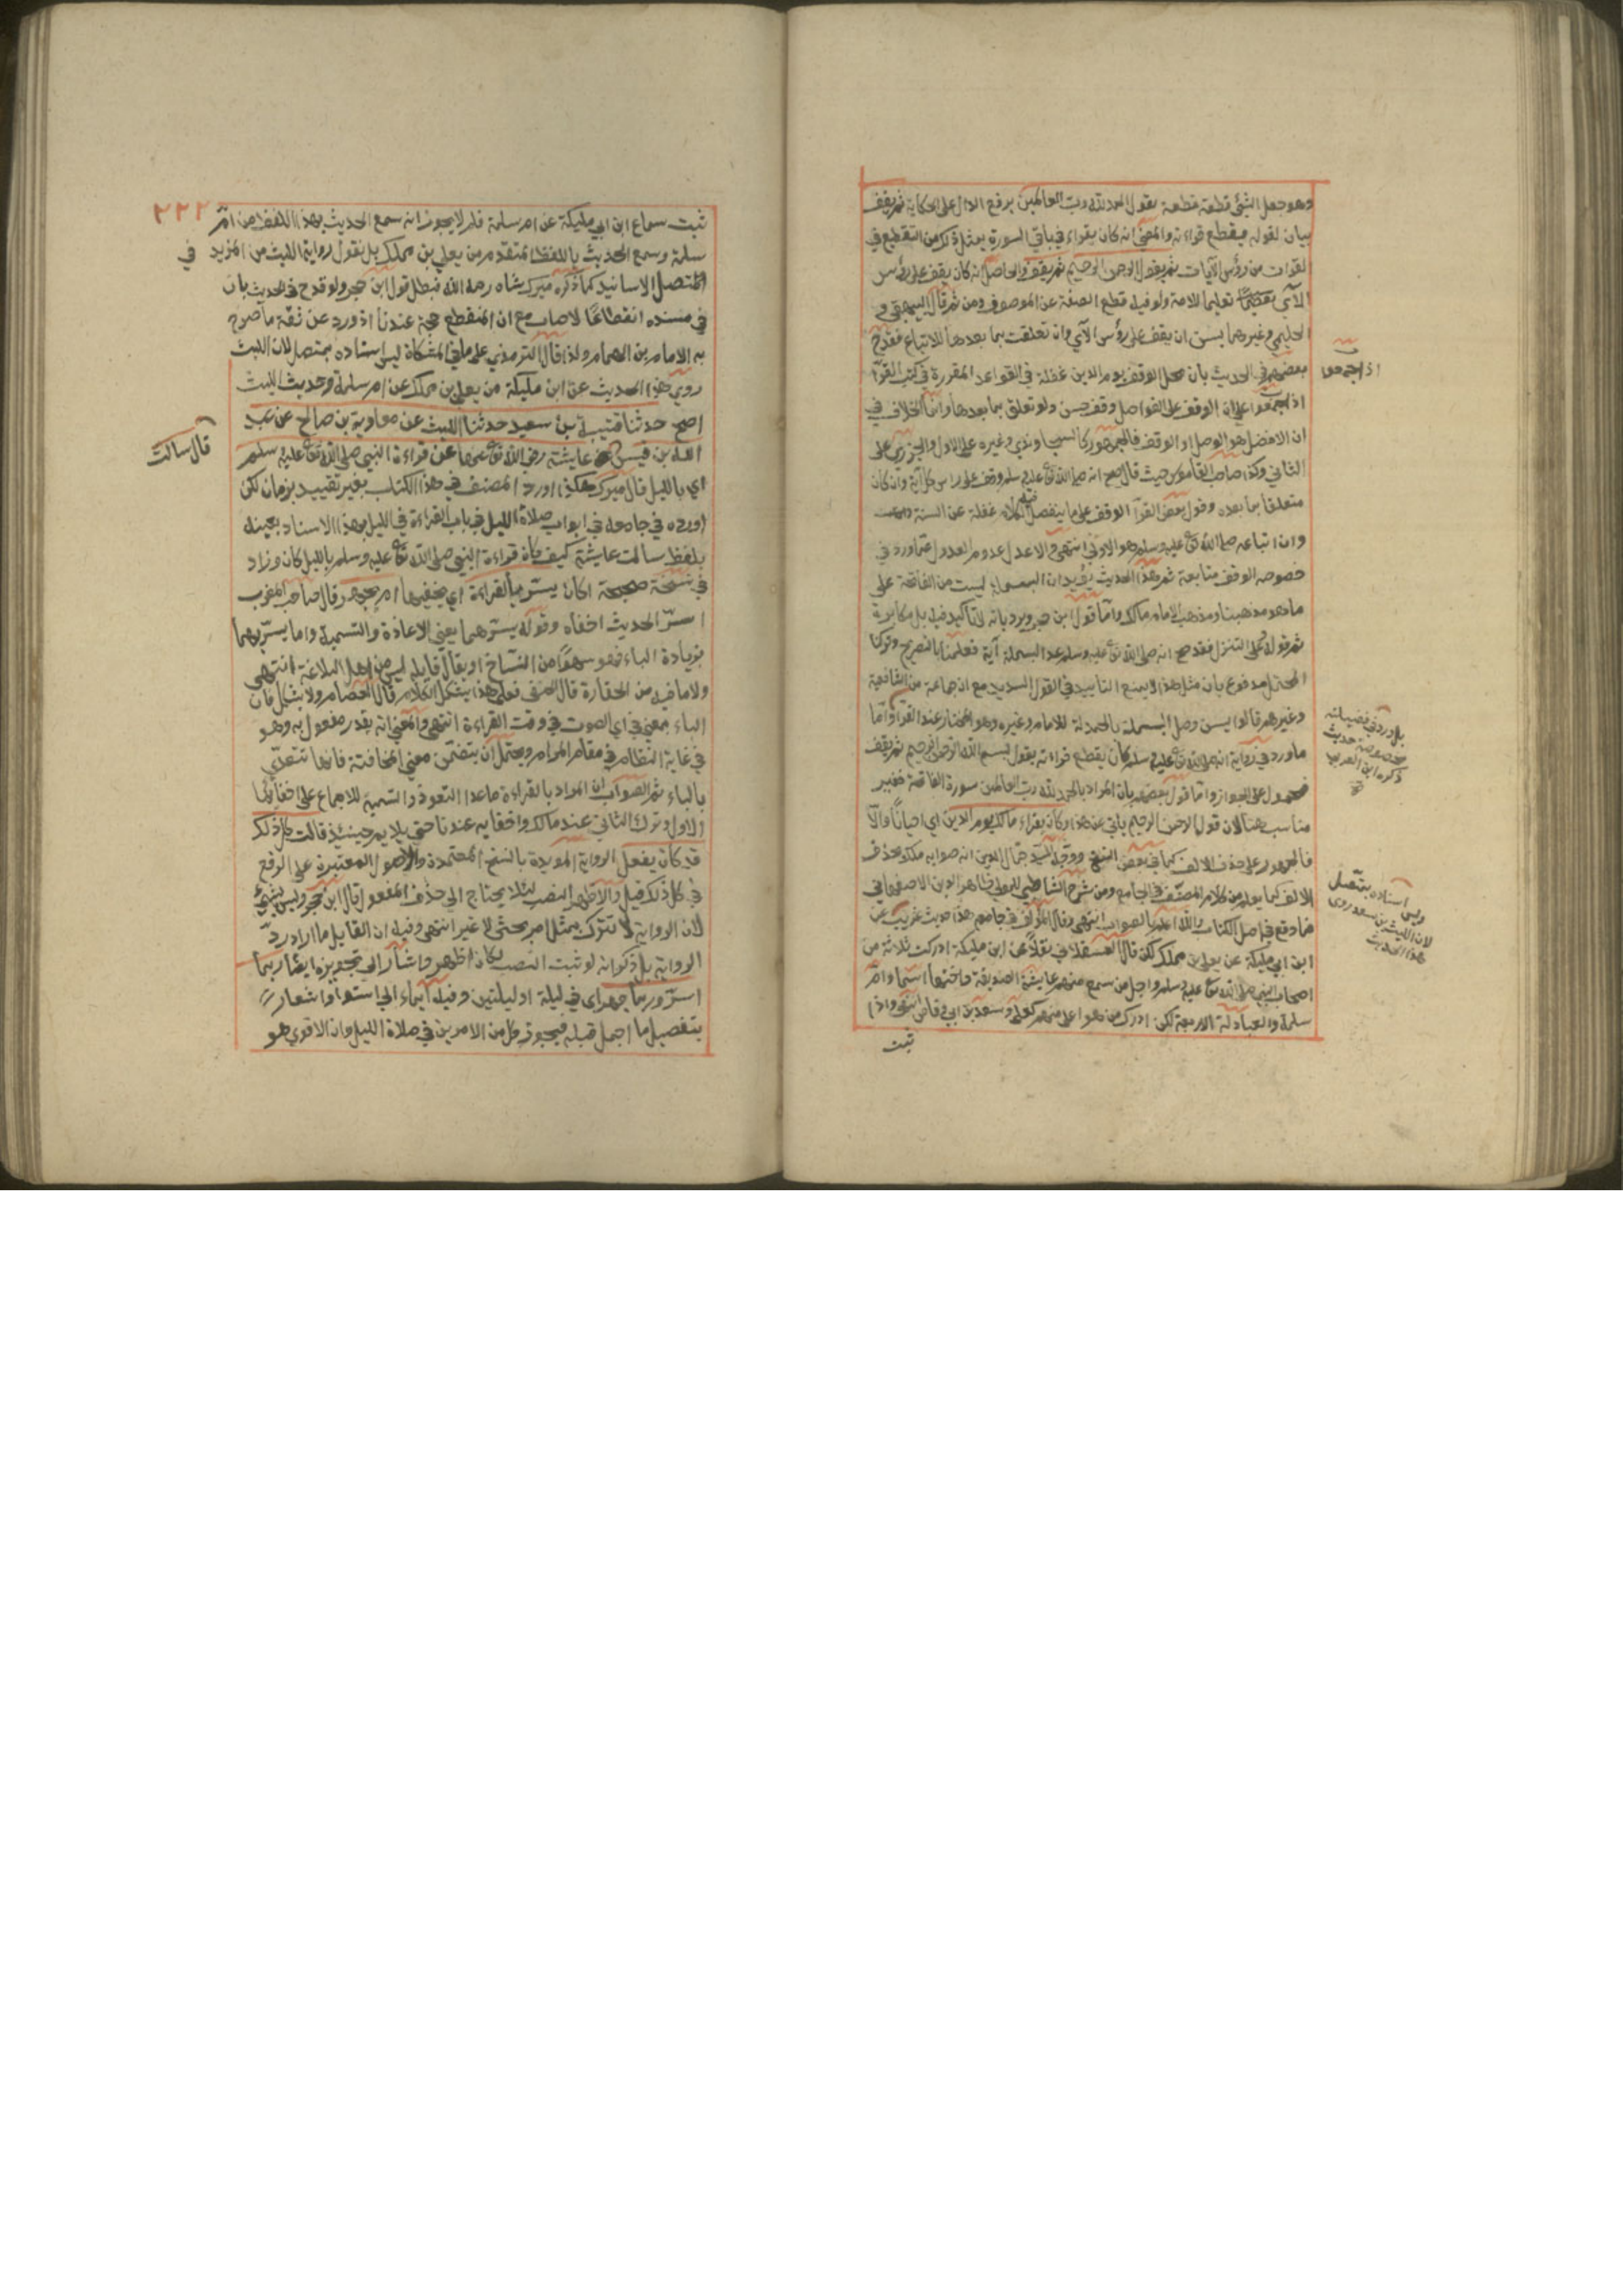 وهو جعل الشئ قطعة قطعة يقول الحمد لله رب العالمين برفع الدال على الحكاية ثم يقف
بيان لقوله يقطع قراءته والمعنى انه كان يقراء في باقي السورة بمثل ذكر من التقطيع في
لقرات من رؤس الآيات ثم يقول الرحمن الرحيم ثم يقف والحاصل انه كان يقف على رؤس
الآي تعليما للامة ولو فيه قطع الصفة عن الموصوف ومن ثم قال البيهقي و
الحليمي وغيرهما يسن ان يقف على رؤس الآي وان تعلقت بما بعدها للاتباع فقدح
بعضهم في الحديث بأن محل الوقف يوم الدين غفلة في القواعد المقررة في كتب القرآ
اذ اجمعوا على ان الوقف على الفواصل وقف حسن ولو تعلق بما بعدها وانما الخلاف في
ان الافضل هو الوصل او الوقف فالجمهور كالسجاوندي وغيره على الاول والجزري على
الثاني وكذا صاحب القاموس حيث قال صح انه صلى الله تع عليه وسلم وقف على راس كل آية وان كان
متعلقا بما بعده وقول بعض القرآ الوقف على ما ينفصل فيه الكلام غفلة عن السنة
وان اتباعه صلى الله تع عليه وسلم هو الاولى انتهى والاعدل عدم العدول عما ورد في
خصوصه الوقف متابعة ثم هذا الحديث يؤيد ان البسملة ليست من الفاتحة على
ما هو مذهبنا ومذهب الامام مالك واما قول ابن حجر ويرد بانه لا تأكيد فيه بل مكابرة
ثم قوله وعلى التنزل فقد صح انه صلى الله تع عليه وسلم عد البسملة آية فعلمنا بالصريح وتركنا
المحتمل مدفوع بان مثل هذا لا يمنع التأييد في القول السديد مع ان جماعة من الشافعية
وغيرهم قالوا يسن وصل البسملة بالحمدلة للامام وغيره وهو المختار عند القرآ واما
ما ورد في رواية انه صلى الله تع عليه وسلم كان يقطع قراءته يقول بسم الله الرحمن الرحيم ثم يقف
فمحمول على الجواز واما قول بعضهم بان المراد بالحمد لله رب العالمين سورة الفاتحة فغير
مناسب هنا لان قوله الرحمن الرحيم يابى عن هذا وكان يقراء مالك يوم الدين اي احيانا والا
فالجمهور على حذف الالف كما في بعض النسخ ووجه السيد جمال الدين انه صوابه ملك بحذف
الالف كما يعلم من كلام المصنف في الجامع ومن شرح الشاطبي للمولى ظاهر الدين الاصفهاني
فما وقع في اصل الكتاب والله اعلم بالصواب انتهى وقال المؤلف في جامعه هذا حديث غريب عن
ابن ابي مليكة عن يعلى بن مملك لكن قال العسقلاني نقلا عن ابن مليكة ادركت ثلاثة من
اصحاب النبي صلى الله تع عليه وسلم واجل من سمع منهم عايشة الصديقة واختها اسماء وام
سلمة والعبادلة الاربعة لكن ادرك من هو اعلى منهم كعلي وسعد بن ابي وقاص انتهى واذا
ثبت
اذ اجمعوا
بل ورد في فضيلته
بخصوصه حديث
ذكره ابن العربي
وليس اسناده بمتصل
لان الليث بن سعد روى
هذا الحديث
٢٢٢
ثبت سماع ابن ابي مليكة عن ام سلمة فلم لا يجوز انه سمع الحديث بهذا اللفظ من ام
سلمة وسمع الحديث باللفظ المتقدم من يعلى بن مملك بل نقول رواية الليث من المزيد في
المتصل الاسانيد كما ذكره ميرك شاه رحمه الله فبطل قول ابن حجر ولو قدح في الحديث بان
في مسنده انقطاعا لاصاب مع ان المنقطع حجة عندنا اذ ورد عن ثقة ما صرح
به الامام بن الهمام ولذا قال الترمذي على ما في المشكاة ليس اسناده بمتصل لان الليث
روى هذا الحديث عن ابن مليكة من يعلى بن مملك عن ام سلمة وحديث الليث
اصح حدثنا قتيبة بن سعيد حدثنا الليث عن معاوية بن صالح عن عبد
الله بن قيس عايشة رضي الله تع عنها عن قراءة النبي صلى الله تع عليه وسلم
اي بالليل قال ميرك هكذا اورد المصنف في هذا الكتاب بغير تقييد بزمان لكن
اورده في جامعه في ابواب صلاة الليل في باب القراءة في الليل بهذا الاسناد بعينه
بلفظ سالت عايشة كيف كان قراءة النبي صلى الله تع عليه وسلم بالليل كان وزاد
في نسخة صحيحة اكان يسر بالقراءة اي يخفيها ام يجهر قال صاحب المغرب
اسر الحديث اخفاه وقوله يسرهما يعني الاعاذة والتسمية واما يسر بهما
بزيادة الباء فهو سهو من النساخ او يقال قايله ليس من اهل البلاغة انتهى
ولا ما فيه من الحقارة قال الحنفي فعلى هذا يشكل الكلام وقال العصام ولا يشكل فان
الباء بمعنى في اي الصوت في وقت القراءة انتهى والمعنى انه يقدر مفعول به وهو
في غاية النظام في مقام المرام ويحتمل ان يتضمن معنى المخافتة فانها تتعدى
بالباء ثم الصواب ان المراد بالقراءة ما عدا التعوذ والتسمية للاجماع على اخفائها
الاول وترك الثاني عند مالك واخفايه عندنا حتى يلايم حينئذ قالت كل ذلك
قد كان يفعل الرواية المويدة بالنسخ المعتمدة والاصول المعتبرة على الرفع
في كل ذلك قيل والاظهر النصب لئلا يحتاج الى حذف المفعول قال ابن حجر وليس بشئ
لان الرواية لا تترك بمثل امر بحثى لا غير انتهى وفيه ان القايل ما اراد رد
الرواية بل ذكر انه لو ثبت النصب لكان اظهر واشار الى تجويزه ايضا ربما
اسر وربما جهر اي في ليلة او ليلتين وفيه ايماء الى استوا واشعار
بتفصيل ما اجمل قبله فيجوز كل من الامرين في صلاة الليل وان الاقوى هو
قال سالت